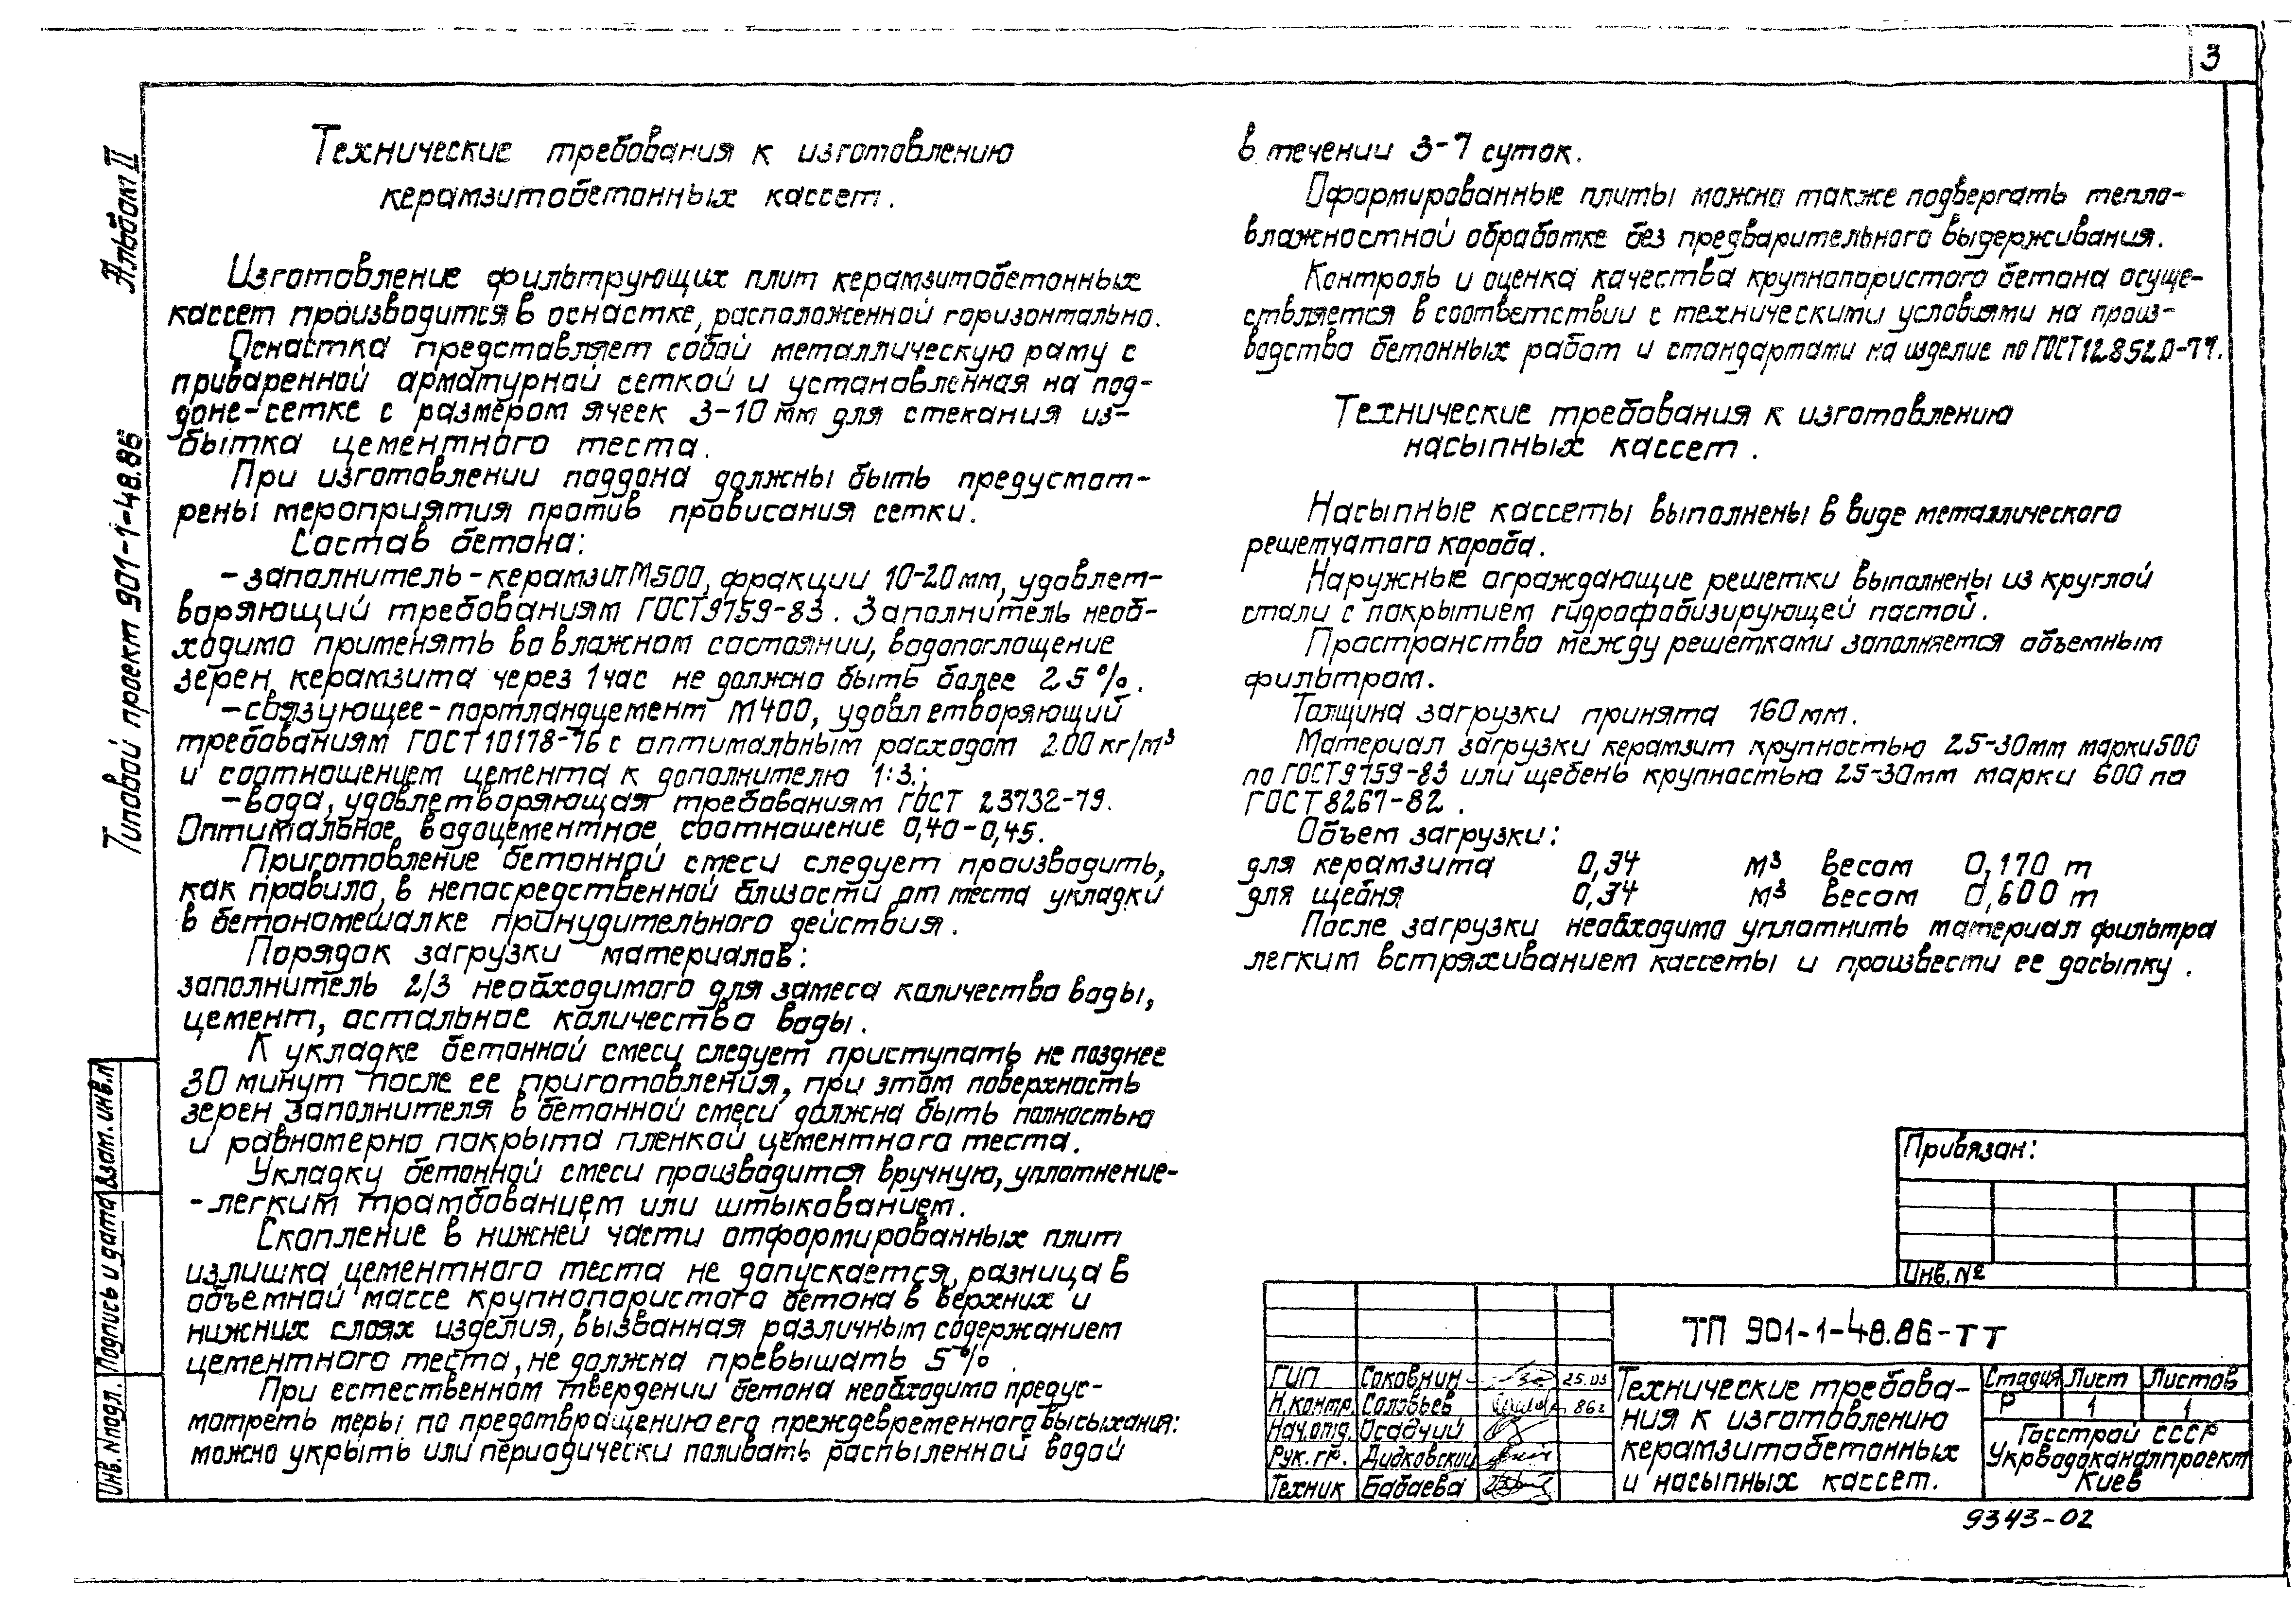 3
Альбом II
Типовой проект 901-1-48.86
Технические требования к изготовлению
керамзитобетонных кассет.
Изготовление фильтрующих плит керамзитобетонных
кассет производится в оснастке, расположенной горизонтально.
Оснастка представляет собой металлическую раму с
приваренной арматурной сеткой и установленная на под-
доне-сетке с размером ячеек 3-10 мм для стекания из-
бытка цементного теста.
При изготовлении поддона должны быть предусмот-
рены мероприятия против провисания сетки.
Состав бетона:
- заполнитель - керамзит М500, фракции 10-20 мм, удовлет-
воряющий требованиям ГОСТ 9759-83. Заполнитель необ-
ходимо применять во влажном состоянии, водопоглощение
зерен керамзита через 1 час не должно быть более 25%.
- связующее - портландцемент М400, удовлетворяющий
требованиям ГОСТ 10178-76 с оптимальным расходом 200 кг/м³
и соотношением цемента к дополнителю 1:3.;
- вода, удовлетворяющая требованиям ГОСТ 23732-79.
Оптимальное водоцементное соотношение 0,40-0,45.
Приготовление бетонной смеси следует производить,
как правило, в непосредственной близости от места укладки
в бетономешалке принудительного действия.
Порядок загрузки материалов:
заполнитель 2/3 необходимого для замеса количества воды,
цемент, остальное количество воды.
К укладке бетонной смеси следует приступать не позднее
30 минут после ее приготовления, при этом поверхность
зерен заполнителя в бетонной смеси должна быть полностью
и равномерно покрыта пленкой цементного теста.
Укладку бетонной смеси производится вручную, уплотнение-
-легким трамбованием или штыкованием.
Скопление в нижней части отформированных плит
излишка цементного теста не допускается, разница в
объемной массе крупнопористого бетона в верхних и
нижних слоях изделия, вызванная различным содержанием
цементного теста, не должна превышать 5%.
При естественном твердении бетона необходимо предус-
мотреть меры по предотвращению его преждевременного высыхания:
можно укрыть или периодически поливать распыленной водой
в течении 3-7 суток.
Оформированные плиты можно также подвергать тепло-
влажностной обработке без предварительного выдерживания.
Контроль и оценка качества крупнопористого бетона осуще-
ствляется в соответствии с техническими условиями на произ-
водство бетонных работ и стандартами на изделие по ГОСТ 12.8520-77.
Технические требования к изготовлению
насыпных кассет.
Насыпные кассеты выполнены в виде металлического
решетчатого короба.
Наружные ограждающие решетки выполнены из круглой
стали с покрытием гидрофобизирующей пастой.
Пространство между решетками заполняется объемным
фильтром.
Толщина загрузки принята 160 мм.
Материал загрузки керамзит крупностью 25-30мм марки 500
по ГОСТ 9759-83 или щебень крупностью 25-30мм марки 600 по
ГОСТ 8267-82.
Объем загрузки:
для керамзита 0,34 м³ весом 0,170 т
для щебня 0,34 м³ весом 0,600 т
После загрузки необходимо уплотнить материал фильтра
легким встряхиванием кассеты и произвести ее досыпку.
Привязан:
Инв. №
ТП 901-1-48.86-ТТ
ГИП Соковнин 25.03
Н.контр. Соловьев 86г
Нач.отд. Осадчий
Рук.гр. Дидковский
Техник Бабаева
Технические требова-
ния к изготовлению
керамзитобетонных
и насыпных кассет.
Стадия Лист Листов
Р 1 1
Госстрой СССР
Укрводоканалпроект
Киев
9343-02
Взам. инв. №
Подпись и дата
Инв. № подл.